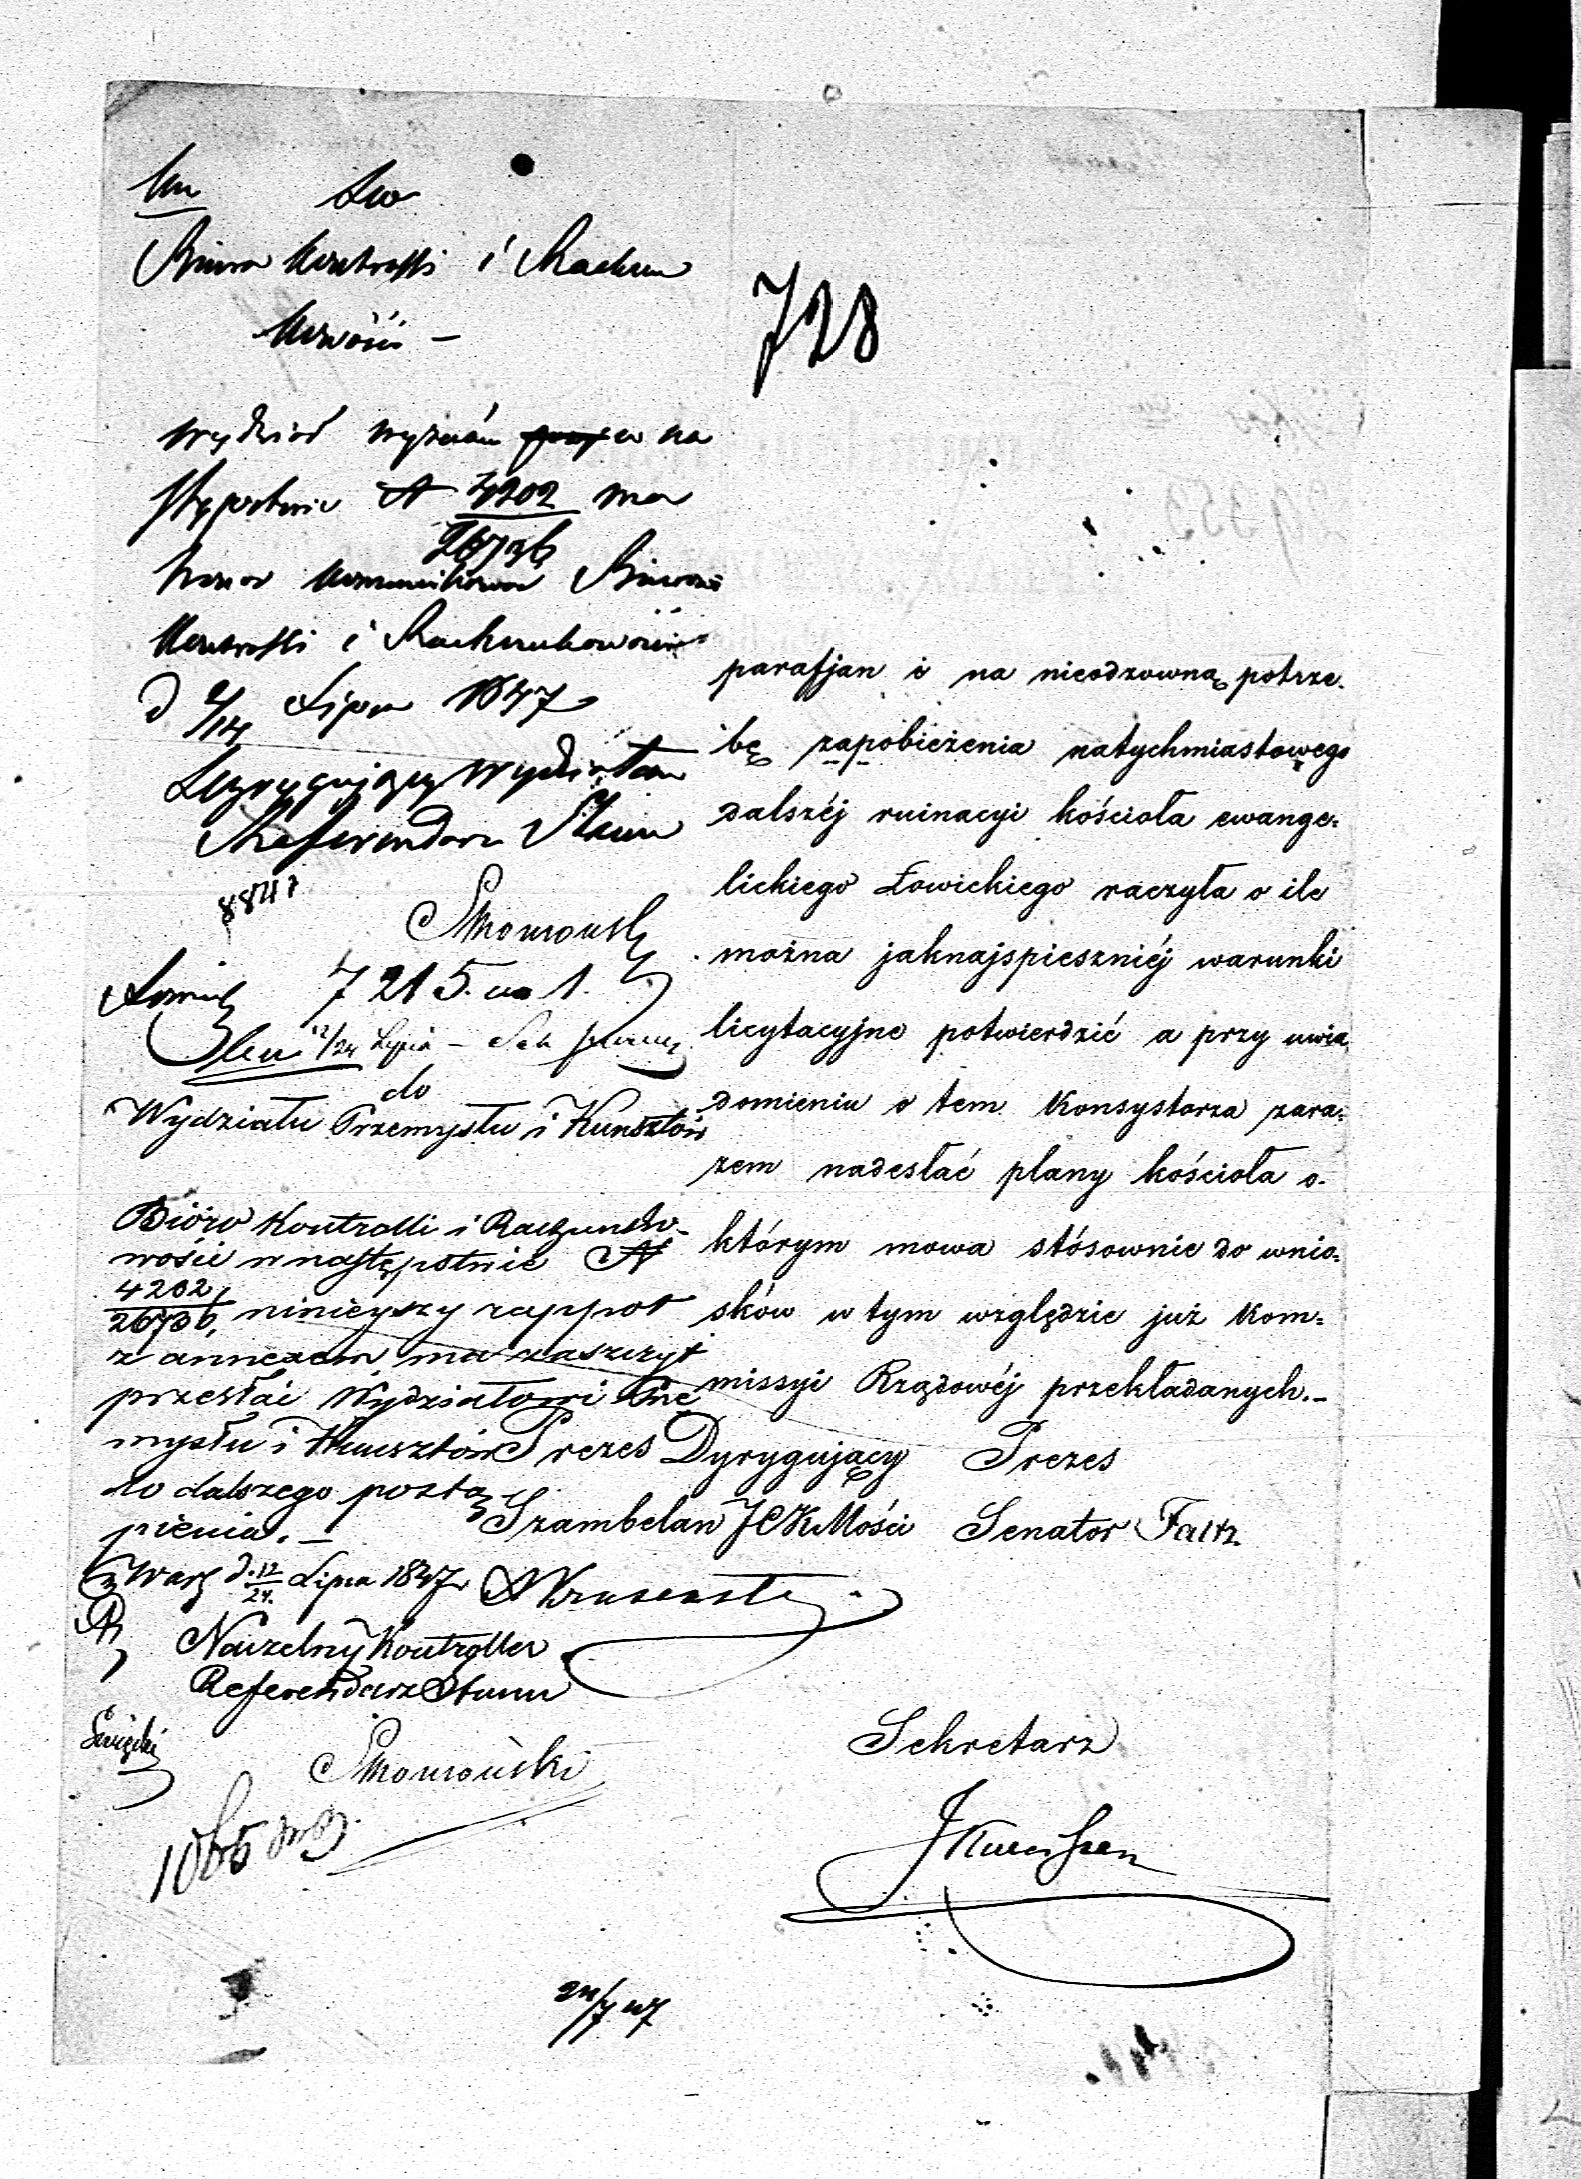 728
Do
Biura Kontrolli i Rachun
kowości –
Wydział wyznań na
stępstwie N 4202/26736 ma
honor kommunikować Biurowi
Kontrolli i Rachunkowości
d 2/14 Lipca 1847
Dyrygujący Wydziałem
Referendarz Stanu
8847
7215.
12/24 Lipca –
do
Wydziału Przemysłu i Kunsztów
Bióro Kontrolli i Rachunko-
wości w następstwie N
4202/26736, ninieyszy rapport
z annexem ma zaszczyt
przesłać Wydziałowi Prze
mysłu i Kunsztów
do dalszego postą
pienia. –
z Warsz d. 12/24. Lipca 1847
Naczelny Kontroller
Referendarz Stanu
Święcki
1066
parafjan i na nieodzowną potrze-
bę zapobieżenia natychmiastowego
dalszéj ruinacyi kościoła ewange-
lickiego Łowickiego raczyła o ile
można jaknajspieszniéj warunki
licytacyjne potwierdzić a przy uwia
domieniu o tem Konsystorza zara-
zem nadesłać plany kościoła o
którym mowa stósownie do wnio-
sków w tym względzie już Kom-
missyi Rządowéj przekładanych.–
Prezes Dyrygujący Prezes
Szambelan JCKMości Senator Faltz
Sekretarz
24/7 47